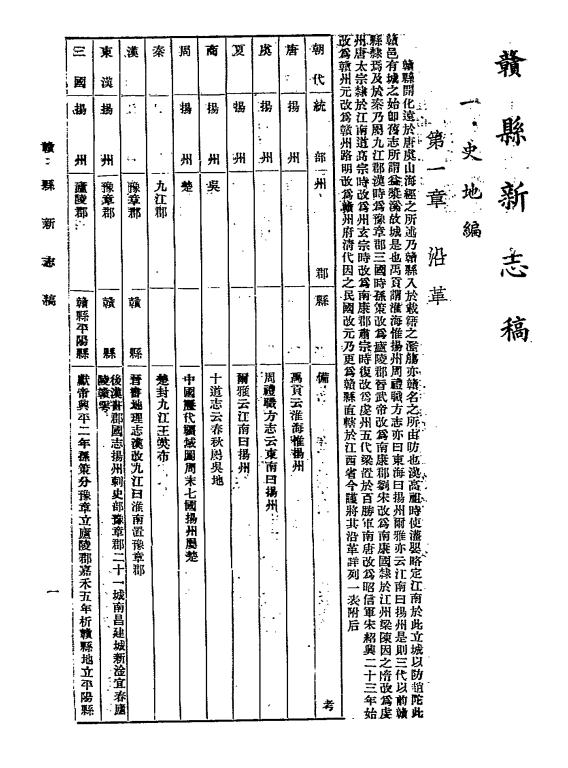 贛縣新志稿
一·史地編
第一章 沿革
贛縣開化遠於唐虞山海經之所述乃贛縣入於載籍之濫觴亦贛名之所由昉也漢高祖時使灌嬰略定江南於此立城以防趙陀此
贛邑有城之始卽舊志所謂益漿溪故城是也禹貢謂淮海惟揚州周禮職方志亦曰東海曰揚州爾雅亦云江南曰揚州是則三代以前贛
縣隸焉及於秦乃屬九江郡漢時爲豫章郡三國時孫策改爲廬陵郡晉武帝改爲南康郡劉宋改爲南康國隸於江州梁陳因之隋改爲虔
州唐太宗隸於江南道高宗時改爲州玄宗時改爲南康郡肅宗時復改爲虔州五代梁置於百勝軍南唐改爲昭信軍宋紹興二十三年始
改爲贛州元改爲贛州路明改爲贛州府清代因之民國改元乃更爲贛縣直轄於江西省今謹將其沿革詳列一表附后
朝代 統部 州郡 縣 備考
唐 揚州 禹貢云淮海惟揚州
虞 揚州 周禮職方志云東南曰揚州
夏 揚州 爾雅云江南曰揚州
商 揚州 吳 十道志云春秋屬吳地
周 揚州 楚 中國歷代疆域圖周末七國揚州屬楚
秦 九江郡 楚封九江王英布
漢 揚州 豫章郡 贛縣 晉書地理志漢改九江曰淮南置豫章郡
東漢 揚州 豫章郡 贛縣 後漢書郡國志揚州刺史部豫章郡二十一城南昌建城新淦宜春廬
陵贛等
三國 揚州 廬陵郡 贛縣平陽縣 獻帝興平二年孫策分豫章立廬陵郡嘉禾五年析贛縣地立平陽縣
贛縣新志稿
一